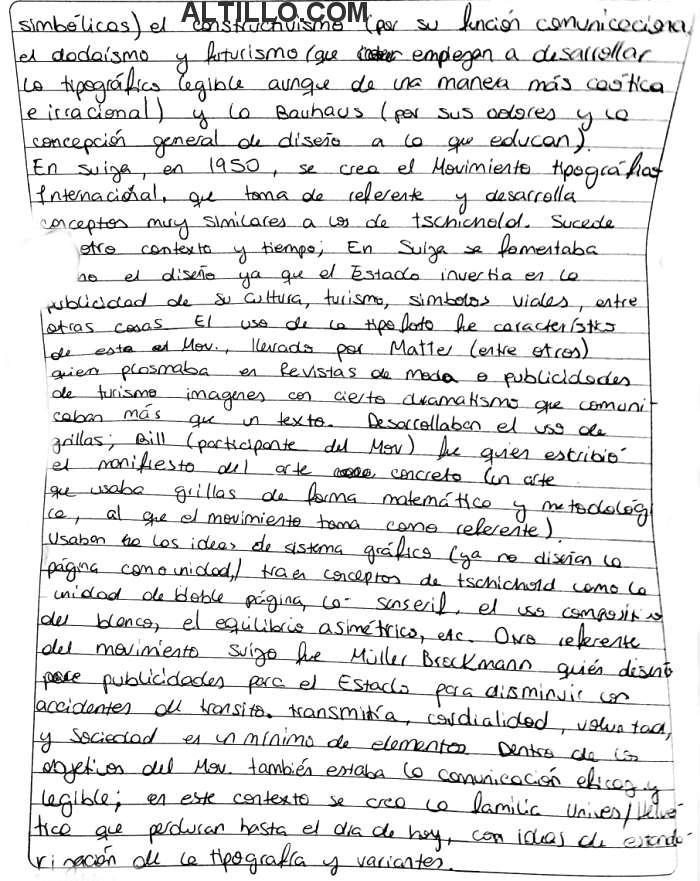 ALTILLO.COM
simbólicas) el constructivismo (por su función comunicaciona
el dadaísmo y futurismo (que empiezan a desarrollar
la tipográfico legible aunque de una manera más caótica
e irracional) y la Bauhaus (por sus colores y la
concepción general de diseño a la que educan).
En suiza, en 1950, se crea el Movimiento tipográfico
Internacional, que toma de referente y desarrolla
conceptos muy similares a los de tschichold. Sucede
otro contexto y tiempo; En Suiza se fomentaba
ho el diseño ya que el Estado invertia en la
publicidad de su cultura, turismo, simbolos viales, entre
otras cosas El uso de la tipofoto fue característico
de este el Mov., llevado por Matter (entre otros)
quien plasmaba en Revistas de moda o publicidades
de turismo imagenes con cierto dramatismo que comuni-
caban más que un texto. Desarrollaban el uso de
grillas; Bill (participante del Mov) fue quien escribió
el manifiesto del arte concreto (un arte
que usaba grillas de forma matemático y metodológi
ca, al que el movimiento toma como referente).
Usaban las ideas de sistema gráfico (ya no diseñan la
página como unidad,) traen conceptos de tschichold como la
unidad de doble página, la sanserif, el uso compositivo
del blanco, el equilibrio asimétrico, etc. Otro referente
del movimiento suizo fue Müller Brockmann quién diseñó
publicidades para el Estado para disminuir los
accidentes de transito. transmitía, cordialidad, voluntad,
y sociedad en un mínimo de elementos. Dentro de los
objetivos del Mov. también estaba la comunicación eficaz y
legible; en este contexto se crea la familia Univers/Helvé-
tica que perduran hasta el día de hoy, con ideas de estanda-
rización de la tipografía y variantes.